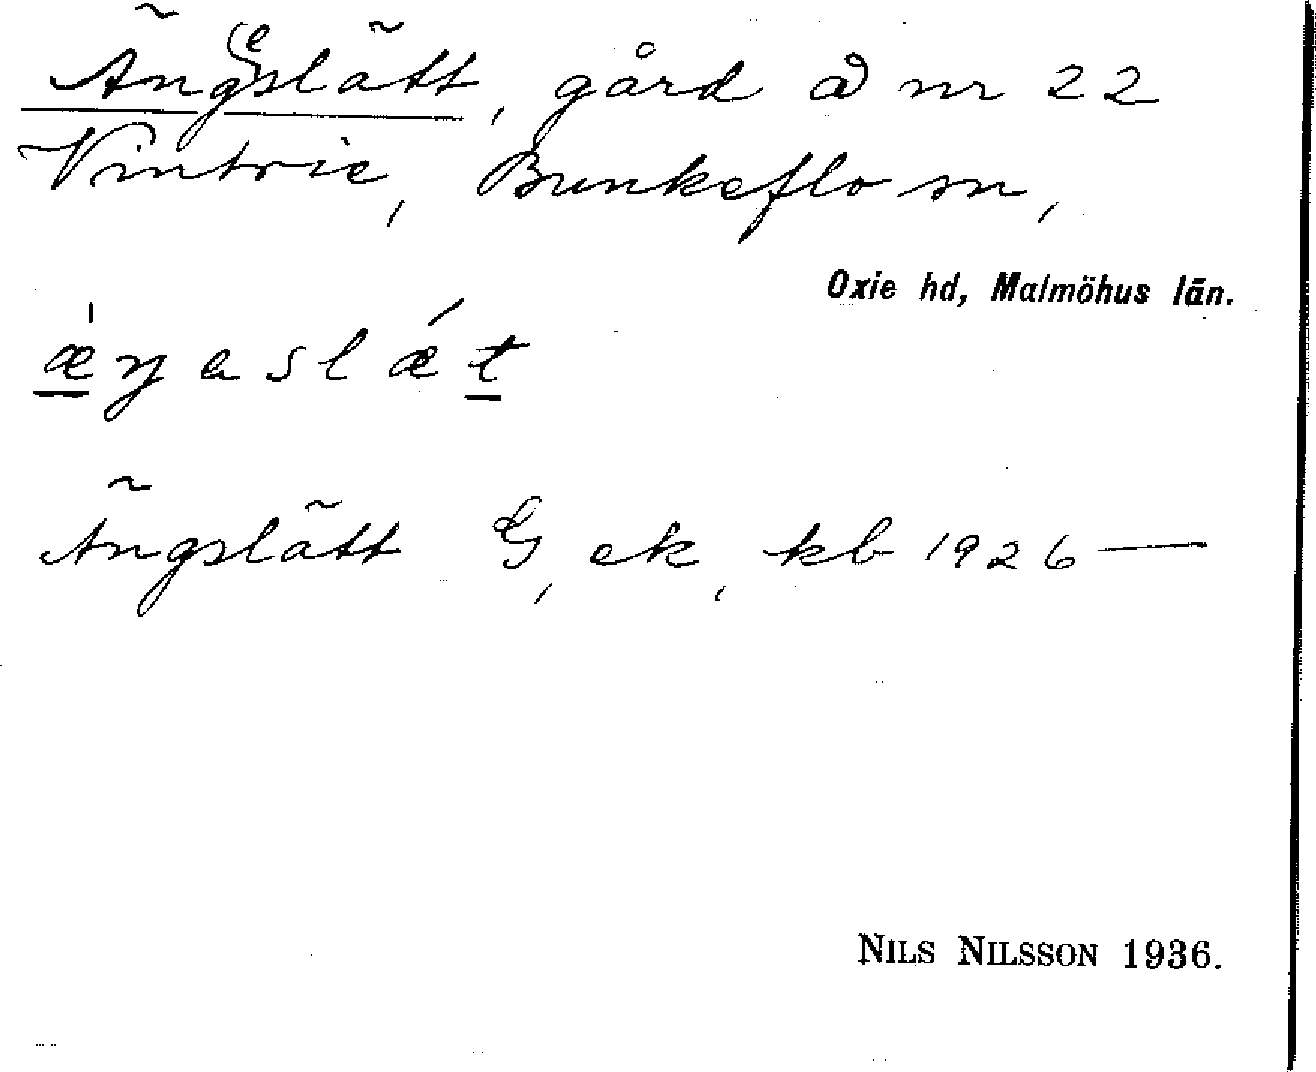 Äng(e)slätt, gård å nr 22
Vintrie, Bunkeflo sn,
Oxie hd, Malmöhus län.
ǽŋaslǽt
Ängslätt G, ek, kb 1926—
NILS NILSSON 1936.